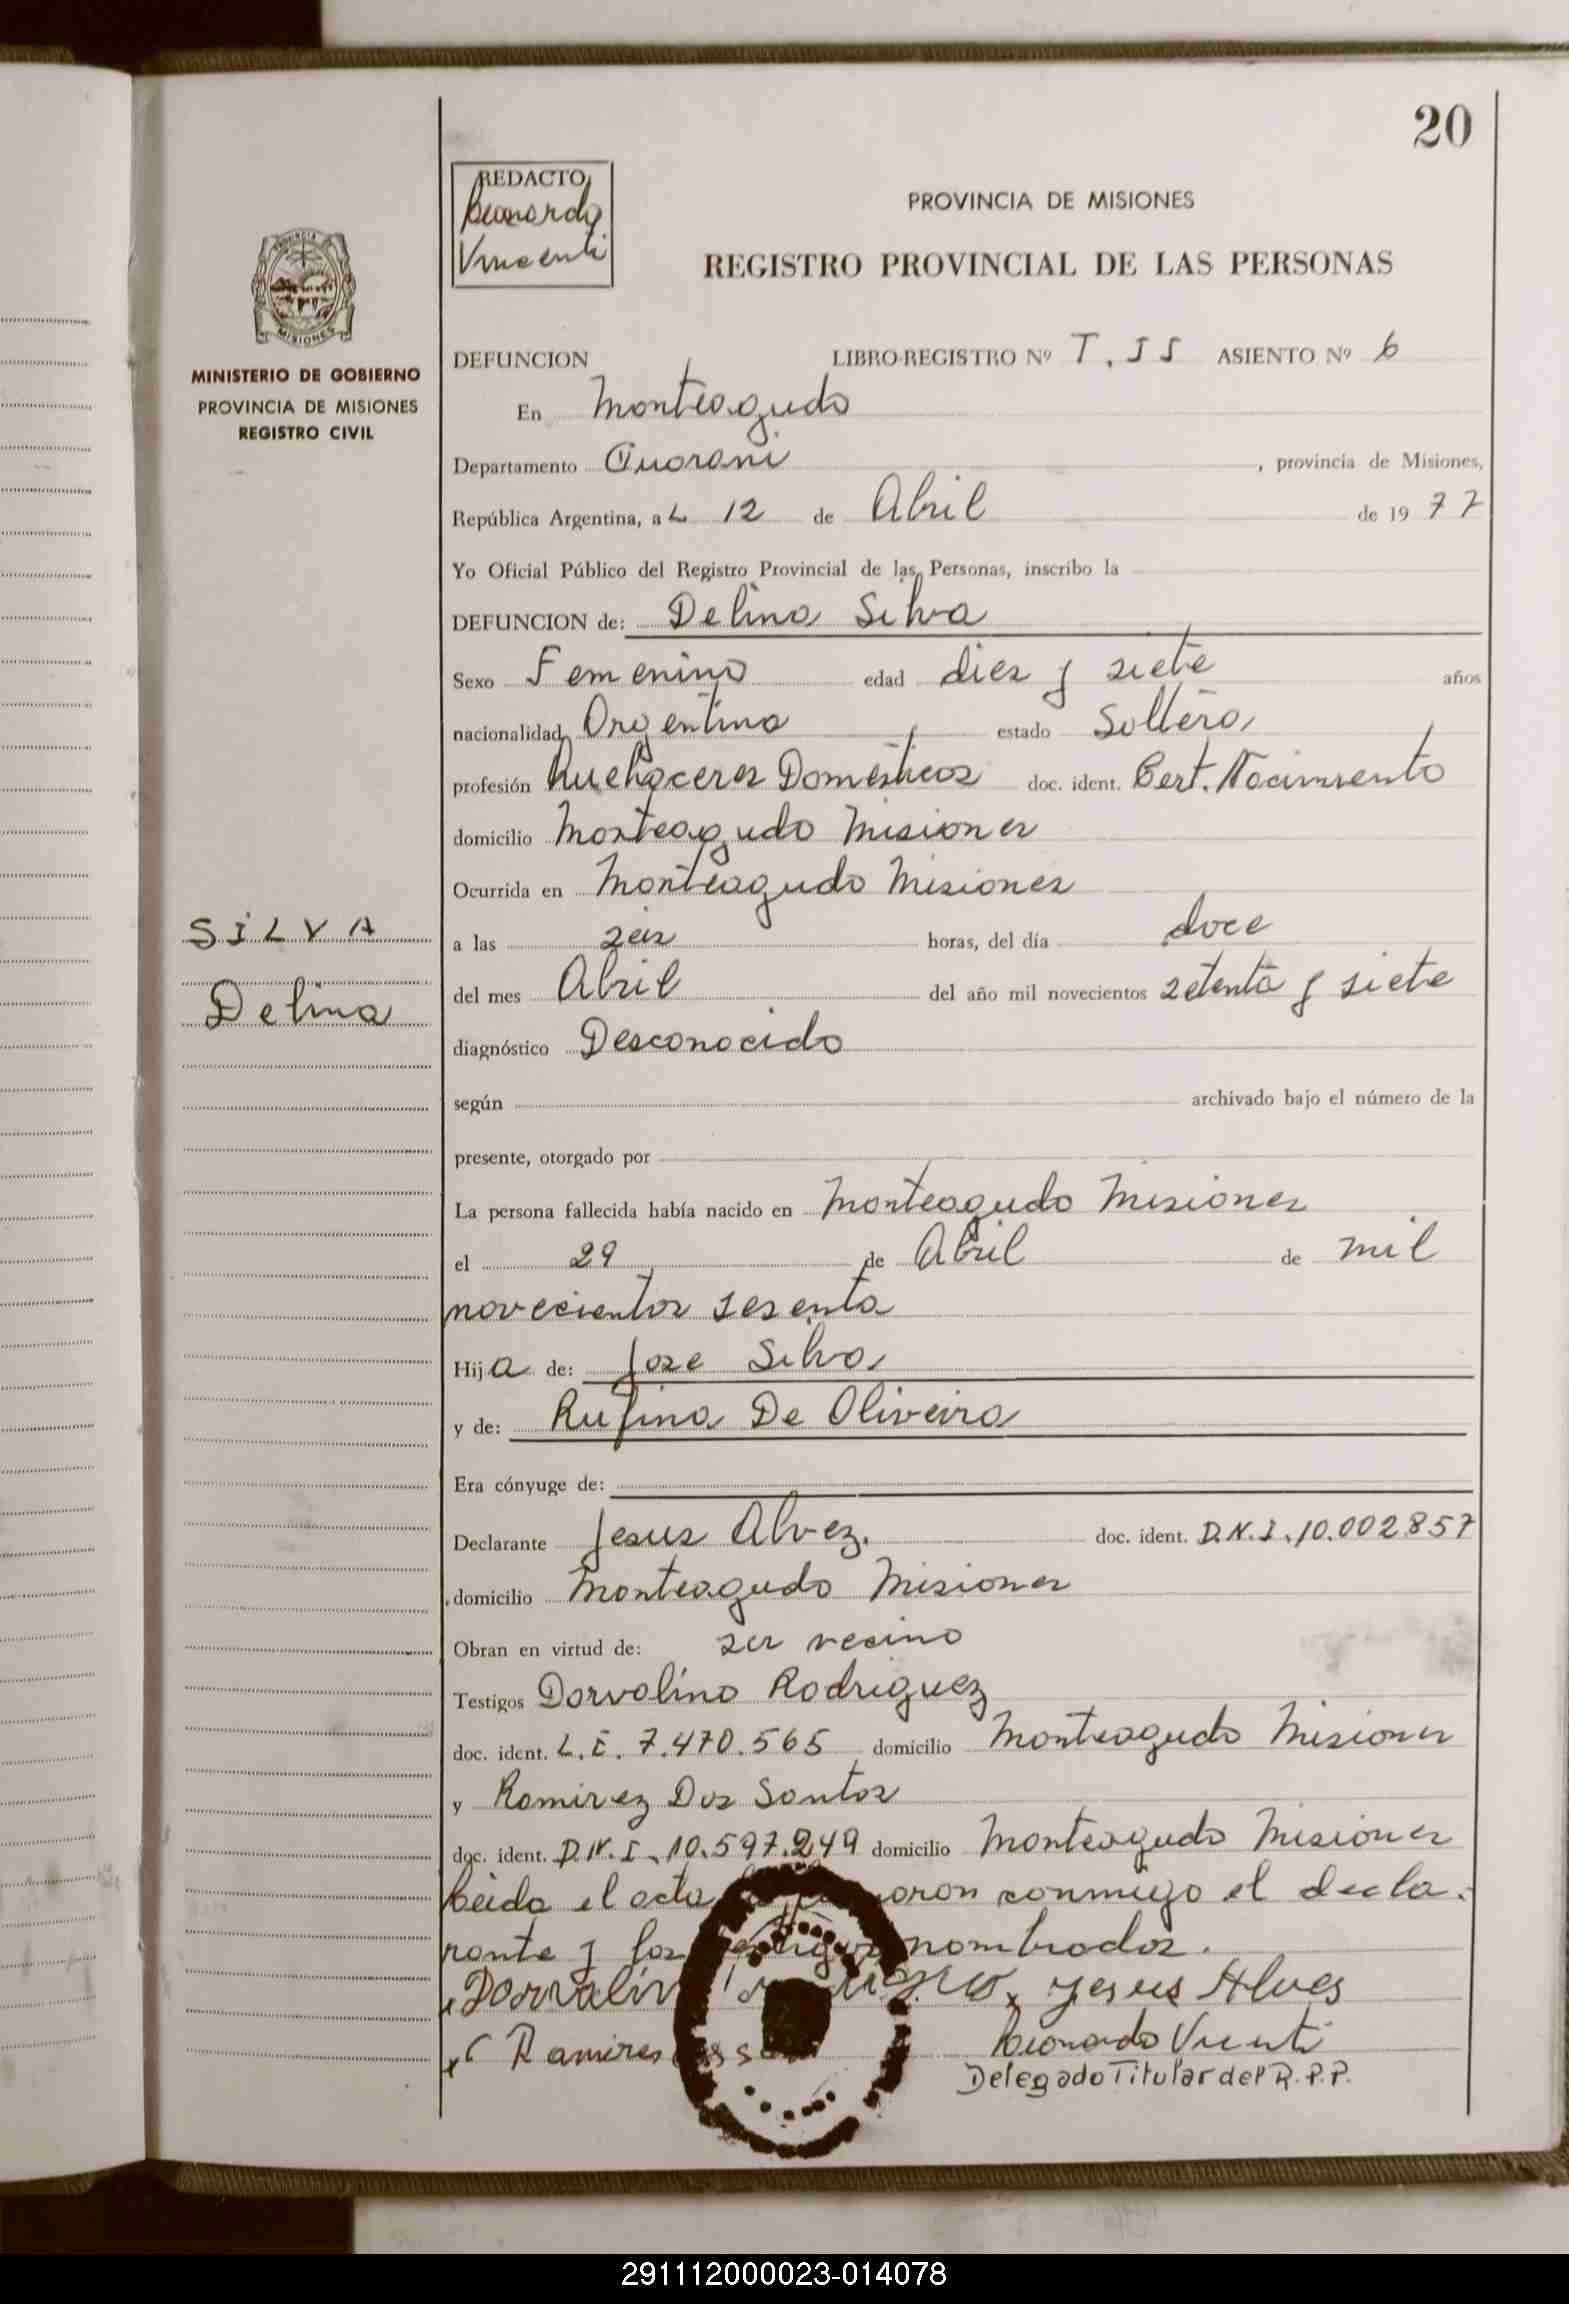 20
REDACTO
Leonardo
Vincenti
PROVINCIA DE MISIONES
REGISTRO PROVINCIAL DE LAS PERSONAS
PROVINCIA
MISIONES
MINISTERIO DE GOBIERNO
PROVINCIA DE MISIONES
REGISTRO CIVIL
DEFUNCION LIBRO-REGISTRO Nº T. II ASIENTO Nº 6
En Monteagudo
Departamento Guarani , provincia de Misiones,
República Argentina, a L 12 de Abril de 19 77
Yo Oficial Público del Registro Provincial de las Personas, inscribo la
DEFUNCION de: Delina Silva
Sexo Femenino edad diez y siete años
nacionalidad Argentina estado Soltera
profesión Quehaceres Domésticos doc. ident. Cert. Nacimiento
domicilio Monteagudo Misiones
Ocurrida en Monteagudo Misiones
SILVA
Delina
a las seis horas, del día doce
del mes Abril del año mil novecientos setenta y siete
diagnóstico Desconocido
según archivado bajo el número de la
presente, otorgado por
La persona fallecida había nacido en Monteagudo Misiones
el 29 de Abril de mil
novecientos sesenta
Hija de: Jose Silva
y de: Rufina De Oliveira
Era cónyuge de:
Declarante Jesus Alvez. doc. ident. D.N.I. 10.002857
domicilio Monteagudo Misiones
Obran en virtud de: ser vecino
Testigos Dorvalino Rodriguez
doc. ident. L.E. 7.470.565 domicilio Monteagudo Misiones
y Ramirez Dos Santos
doc. ident. D.N.I. 10.597.249 domicilio Monteagudo Misiones
Leida el acta conmigo el decla-
rante y los testigos nombrados.
Jesus Alves
Ramires
Leonardo
Delegado Titular del R.P.P.
291112000023-014078